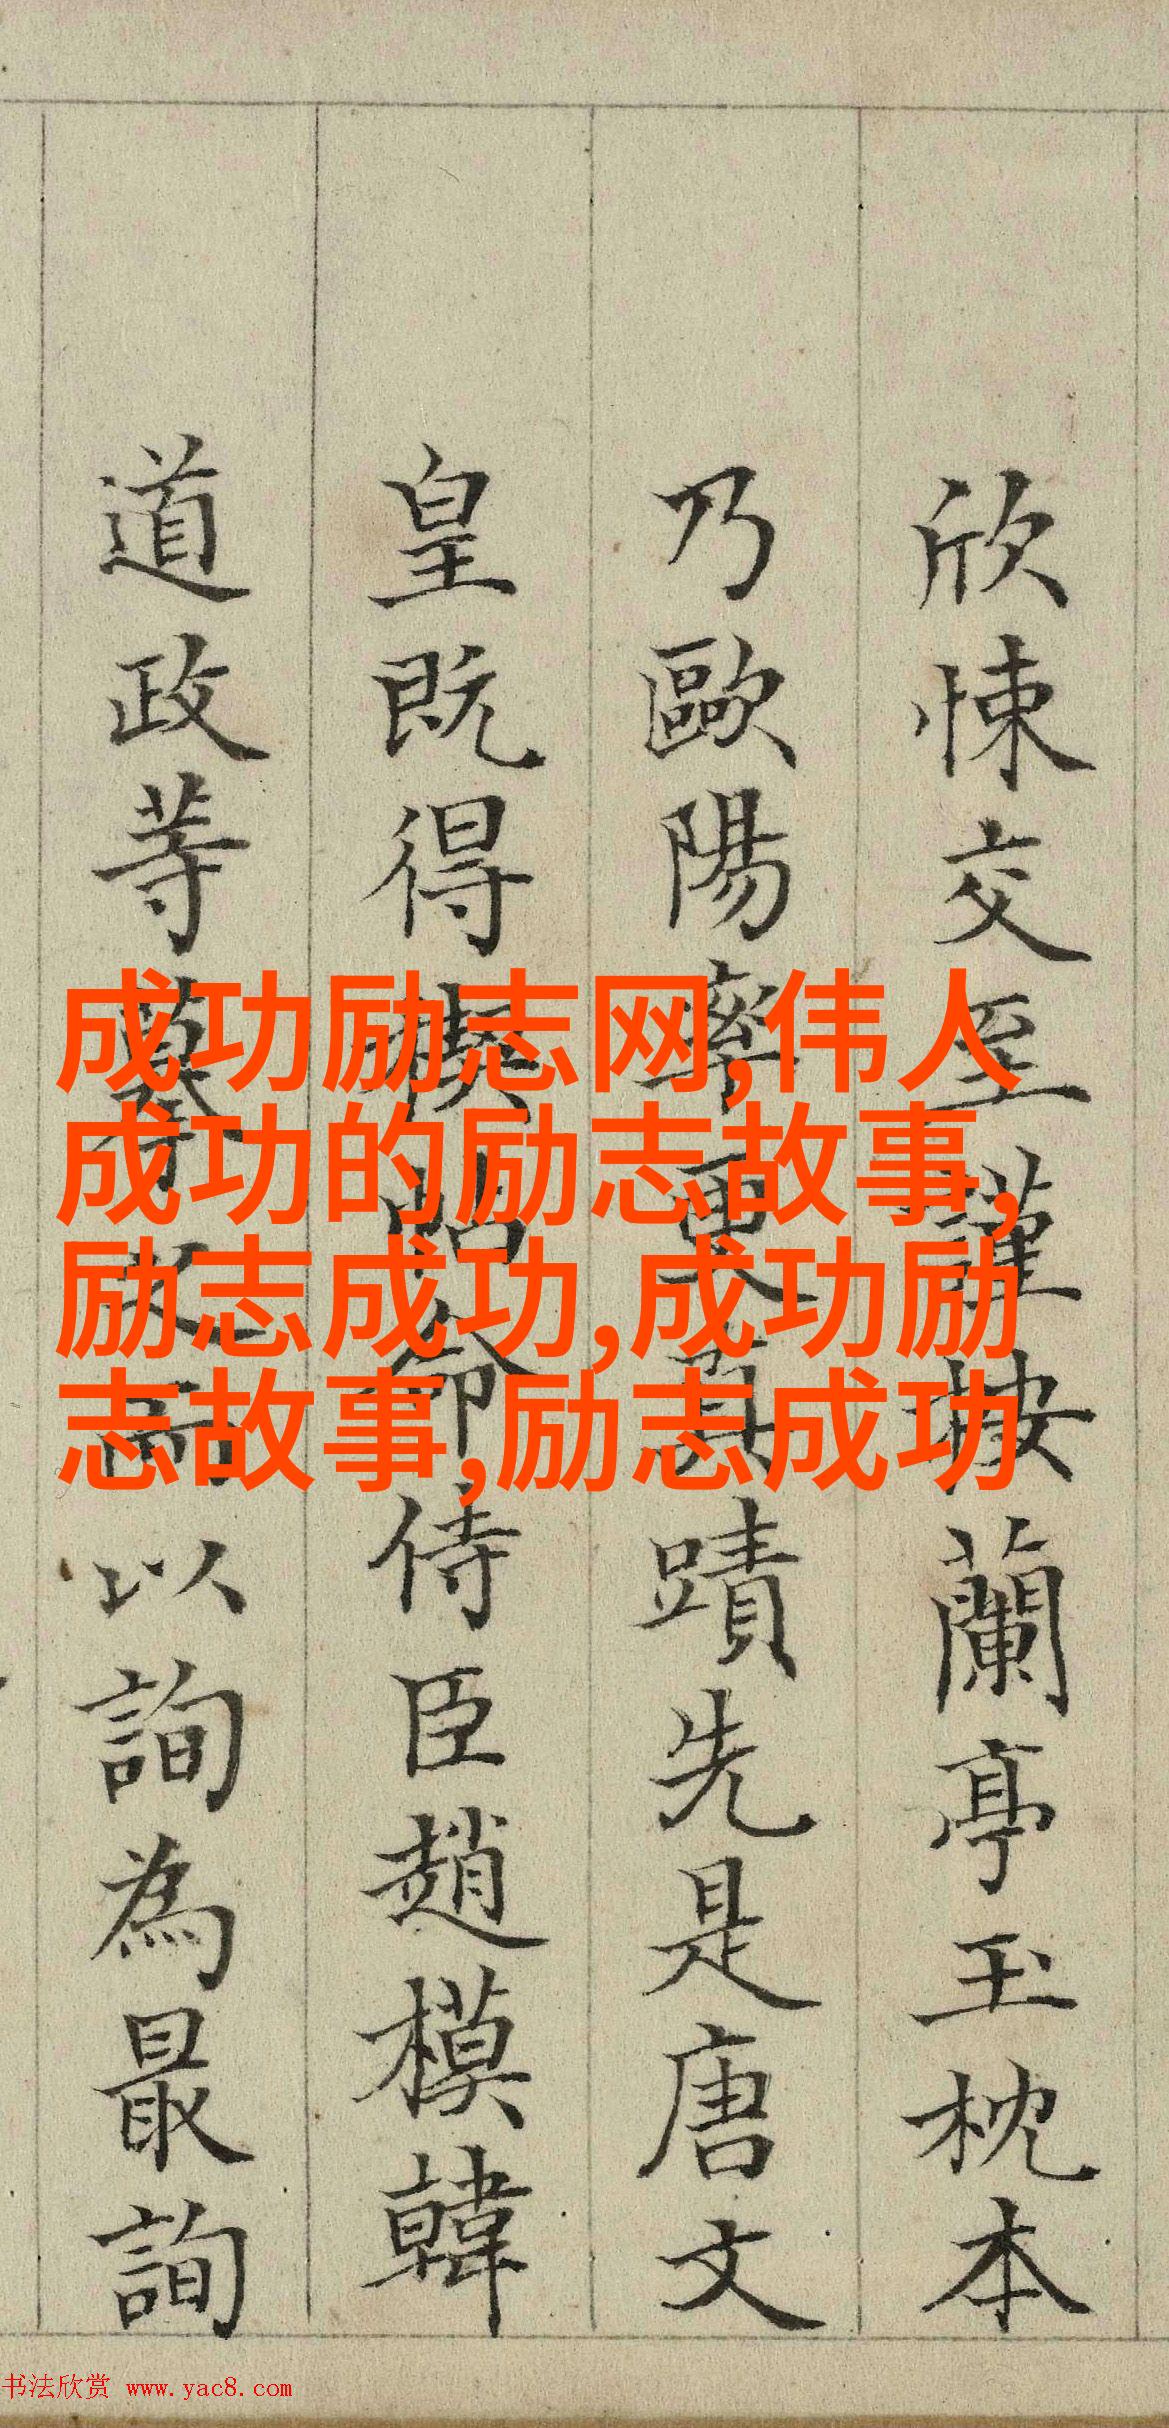 欣悚交至謹按蘭亭玉枕本
乃歐陽率更真蹟先是唐文
皇既得禊帖命侍臣趙模韓
道政等摹以詢為最詢
成功励志网,伟人
成功的励志故事,
励志成功,成功励
志故事,励志成功
书法欣赏 www.yac8.com